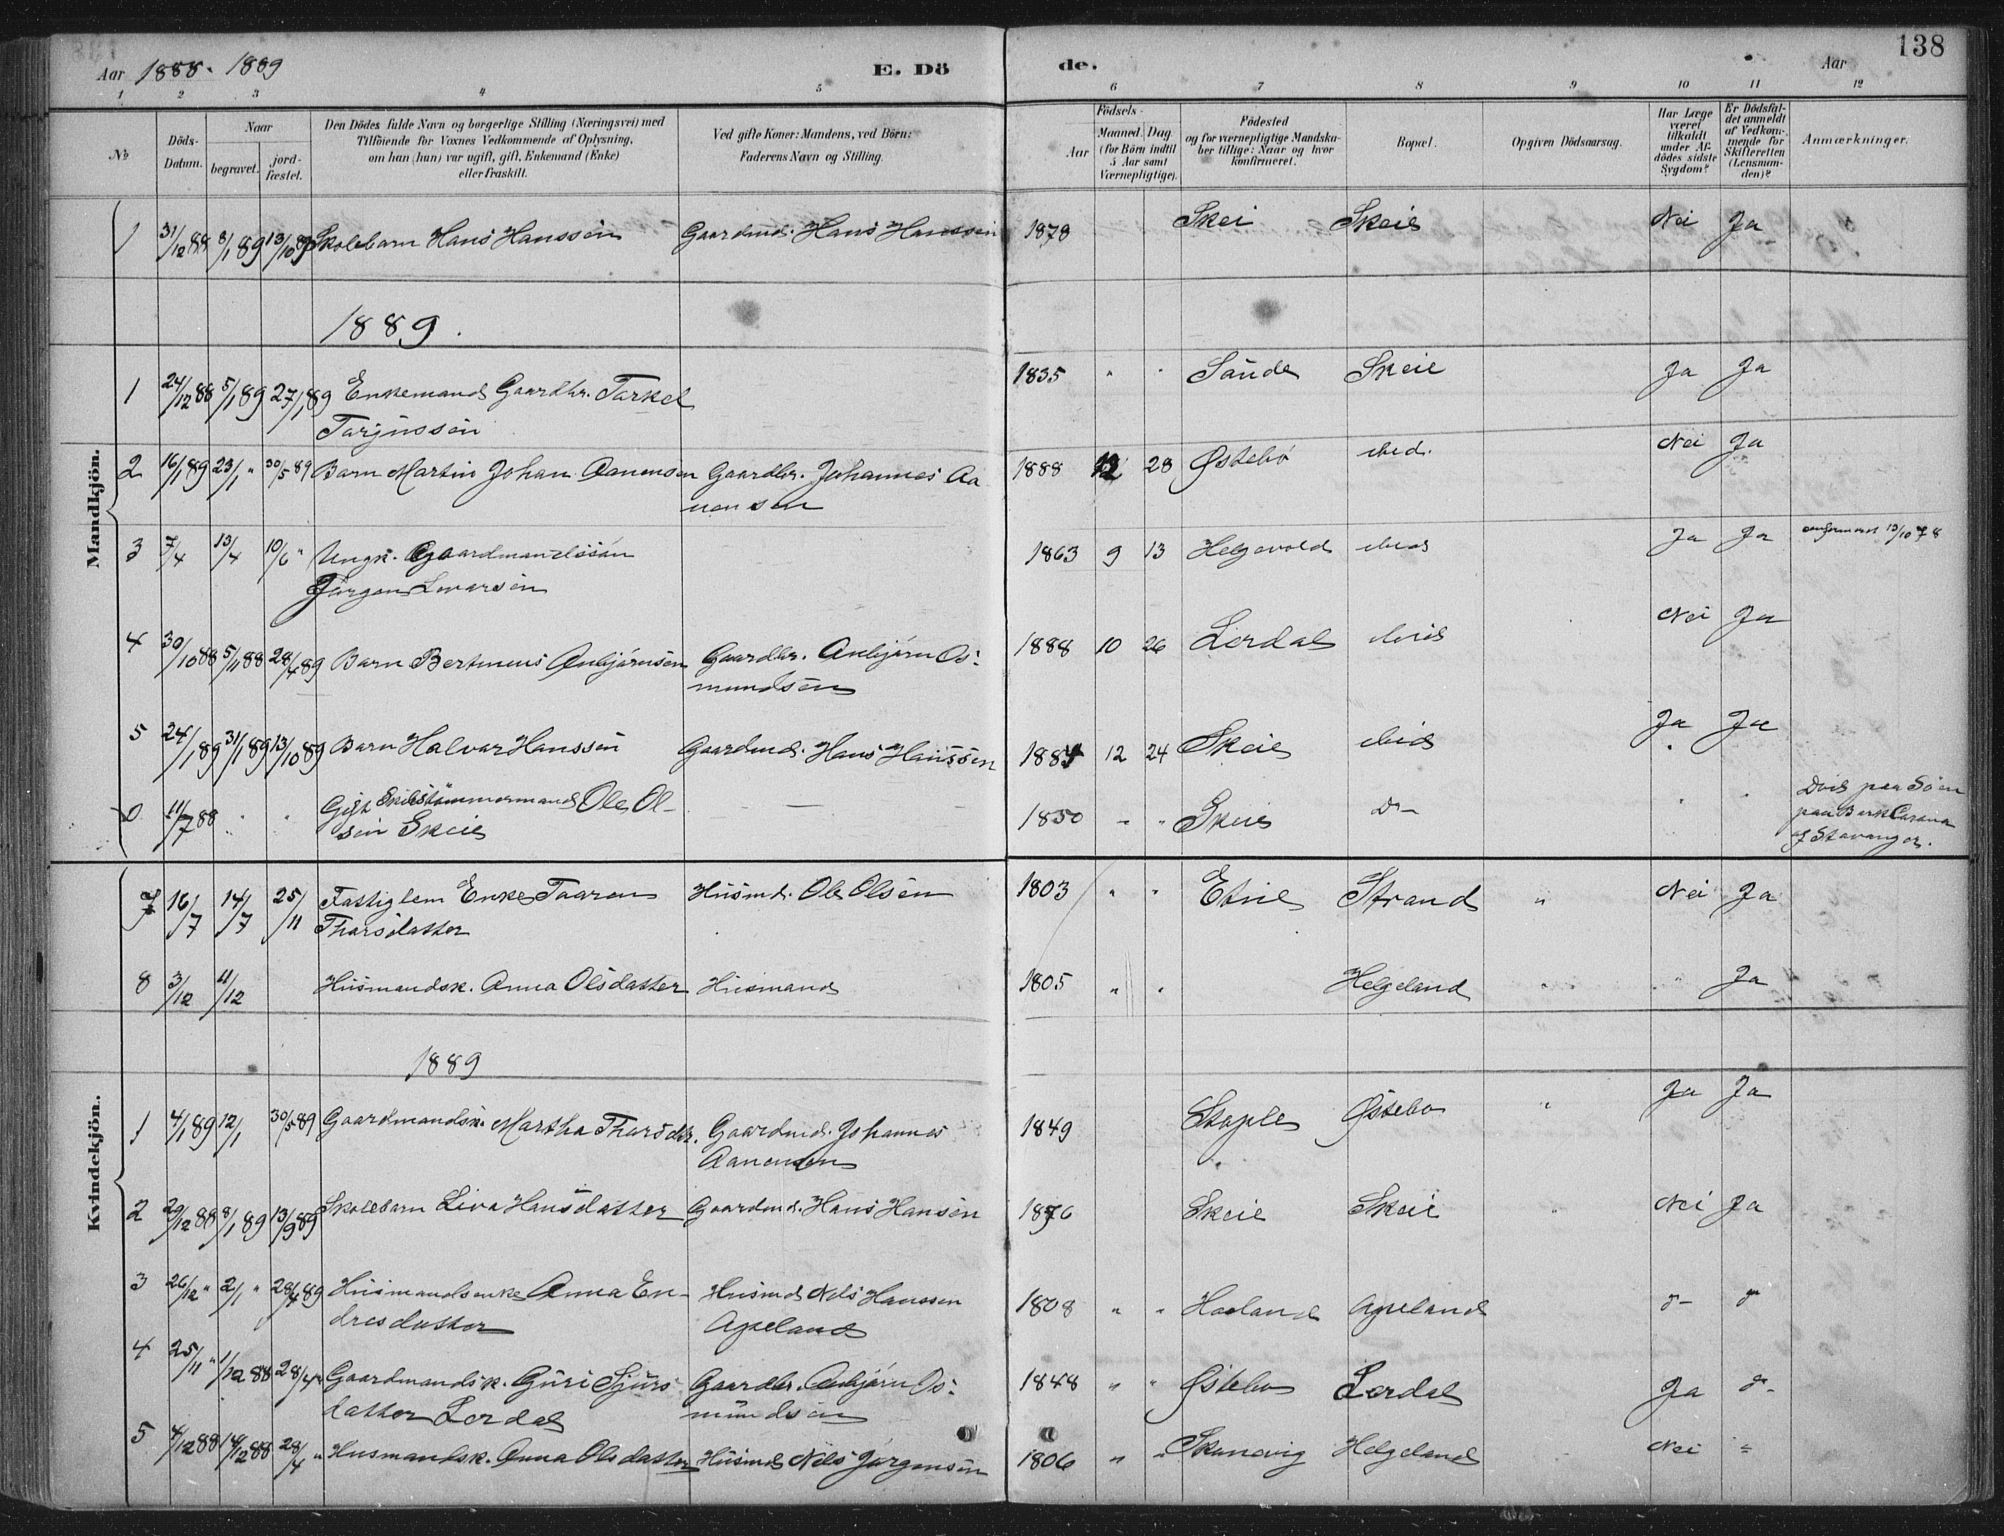 Aar 1888. 1889 E. Dö de. Aar 138
1 2 3 4 5 6 7 8 9 10 11 12
No
Döds-Datum.
Naar
begravet.
jord-fæstet.
Den Dödes fulde Navn og borgerlige Stilling (Næringsvei) med
Tilföiende for Voxnes Vedkommende af Oplysning,
om han (hun) var ugift, gift, Enkemand (Enke)
eller fraskilt.
Ved gifte Koner: Mandens, ved Börn:
Faderens Navn og Stilling.
Födsels-
Aar
Maaned. Dag.
(for Börn indtil
5 Aar samt
Værnepligtige).
Födested
og for værnepligtige Mandska-
ber tillige: Naar og hvor
konfirmeret.
Bopæl.
Opgiven Dödsaarsag.
Har Læge
været
tilkaldt
under Af-
dödes sidste
Sygdom?
Er Dödsfal-
det anmeldt
af Vedkom-
mende for
Skifteretten
(Lensman-
den)?
Anmærkninger.
Mandkjön.
1 31/12 88 8/1 89 13/10 89 Skolebarn Hans Hanssen Gaardmd. Hans Hanssen 1878 Skei Skeie Nei Ja
1889.
1 24/12 88 5/1 89 27/1 89 Enkemand Gaardbr. Tarkel 1835 " " Sande Skeie Ja Ja
Tarjussen
2 16/1 89 23/1 " 30/5 89 Barn Martin Johan Aanensen Gaardbr. Johannes Aa 1888 12 28 Østebø ibid. Nei Ja
nensen
3 7/4 13/4 10/6 " Ungk. Gaardmandssøn 1863 9 13 Helgevold ibid Ja Ja confirmeret 13/10 78
Jørgen Levarsen
4 30/10 88 5/11 88 28/4 89 Barn Bertinius Anbjørnsen Gaardbr. Anbjørn Os- 1888 10 26 Lerdal ibid Nei Ja
mundsen
5 24/1 89 31/1 89 13/10 89 Barn Halvar Hanssen Gaardmd. Hans Hanssen 1884 12 24 Skeie ibid Ja Ja
6 11/7 88 " " Gift Skibstømmermand Ole Ol- — — 1850 " " Skeie do — " " Død paa Søen
sen Skeie paa Bark
af Stavanger.
Kvindekjön.
7 16/7 14/7 25/11 Fattiglem Enke Taaren Husmd. Ole Olsen 1803 " " Etne Strand " Nei Ja
Thorsdatter
8 3/12 11/12 Husmandsk. Anna Olsdatter Husmand 1805 " " Helgeland " " Ja
1889
1 4/1 89 12/1 30/5 89 Gaardmandsk. Martha Thorsdtr. Gaardmd. Johannes 1849 Stople Østebø " Ja Ja
Aanensen
2 29/12 88 8/1 89 13/9 89 Skolebarn Liva Hansdatter Gaardmd. Hans Hansen 1876 Skeie Skeie " Nei Ja
3 26/12 " 2/1 " 28/4 89 Husmandsenke Anna En- Husmd Nils Hanssen 1808 " " Haaland Apeland do— do
dresdatter Apeland
4 25/11 " 1/12 88 28/4 " Gaardmandsk. Guri Sjurs- Gaardbr. Anbjørn Os- 1848 " " Østebø Lerdal Ja do—
datter Lerdal mundsen
5 4/12 88 14/12 88 28/4 " Husmandsk. Anna Olsdatter Husmd Nils Jørgensen 1806 " " Skonevig Helgeland Nei "